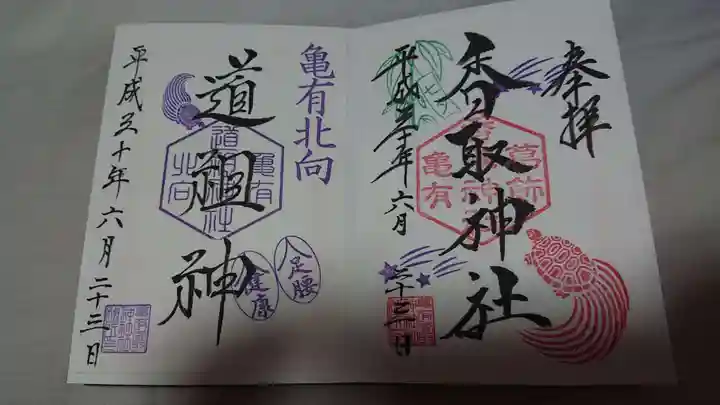 奉拝
香取神社
葛飾
亀有
平成三十年六月二十三日
亀有北向
道祖神
亀有
北向
足腰
健康
平成三十年六月二十三日